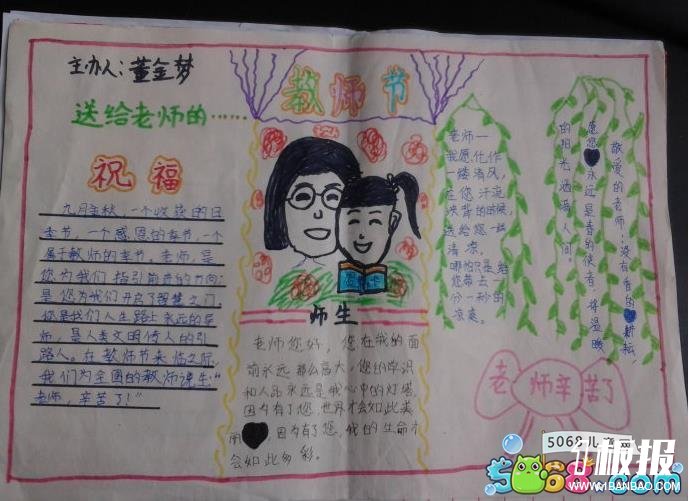 主办人：董金梦
送给老师的……
祝福
九月金秋，一个收获的日
季节，一个感恩的季节，一个
属于教师的季节。老师，是
您为我们指引前进的方向；
是您为我们开启了智慧之门，
您是我们人生路上永远的导
师，是人类文明传人的引
路人。在教师节来临之际，
我们为全国的教师说生“
老师，辛苦了！”
教师节
师生
老师您好，您在我的面
前永远那么高大，您的学识
和人品永远是我心中的灯塔
因为有了您，世界才会如此美
丽，因为有了您，我的生命才
会如此多彩。
老师一
我愿化作
一缕清风，
在您汗流
浃背的时候，
送给您一样
清凉。
哪怕只是给
您带去一
分一秒的
凉爽。
敬爱的老师：没有有的耕耘，
愿您永远是春的使者，将温暖
的阳光洒满人间。
老师辛苦了
5068儿童网
5068.com
板报
WWW.41BANBAO.COM